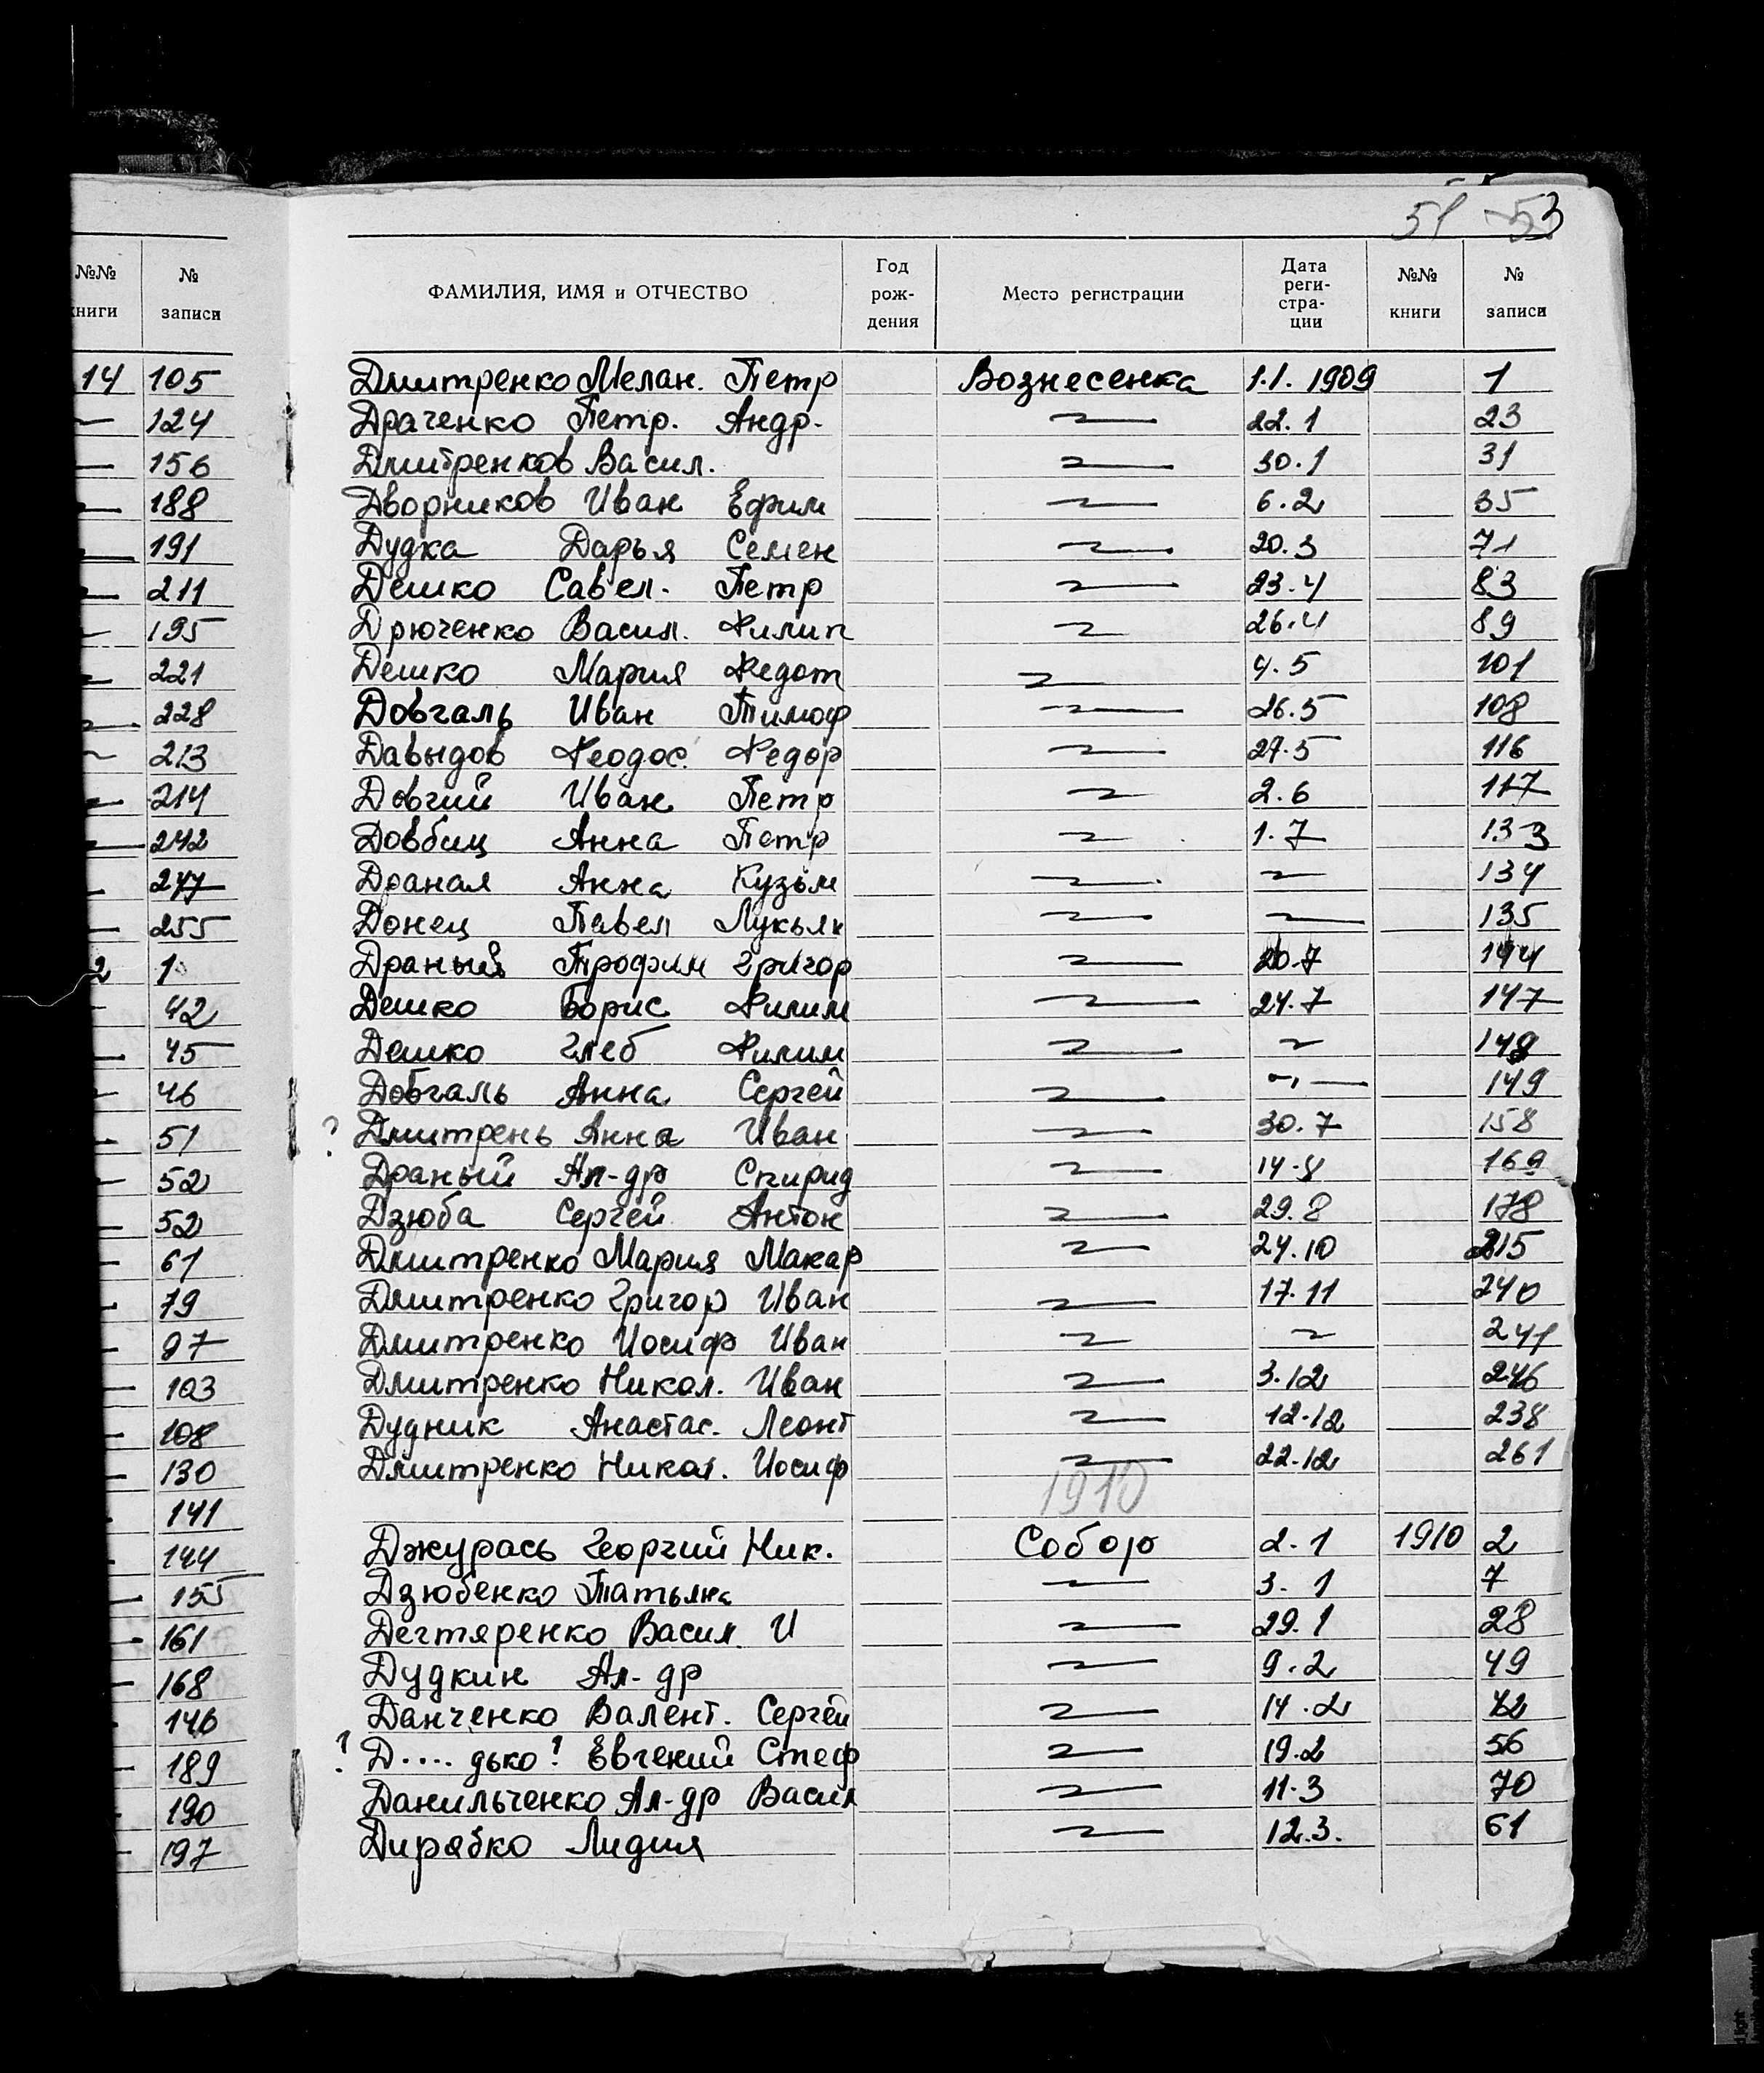 51 53
№№ книги № записи
ФАМИЛИЯ, ИМЯ и ОТЧЕСТВО Год рож- дения Место регистрации Дата реги- стра- ции №№ книги № записи
14 105
124
156
188
191
211
195
221
228
213
214
242
277
255
2 1
42
45
46
51
52
52
61
79
97
103
108
130
141
144
155
161
168
146
189
190
197
Дмитренко Мелан. Петр Вознесенка 1.1. 1909 1
Драченко Петр. Андр. 22.1 23
Дмитренков Васил. 30.1 31
Дворников Иван Ефим 6.2 35
Дудка Дарья Семен 20.3 71
Дешко Савел. Петр 23.4 83
Дрюченко Васил. Филип 26.4 89
Дешко Мария Федот 4.5 101
Довгаль Иван Тимоф 26.5 108
Давыдов Феодос. Федор 27.5 116
Довгий Иван Петр 2.6 117
Довбиц Анна Петр 1.7 133
Драная Анна Кузьм 134
Донец Павел Лукьян 135
Драный Трофим Григор 20.7 144
Дешко Борис Филим 24.7 147
Дешко Глеб Филим 148
Довгаль Анна Сергей 149
? Дмитрень Анна Иван 30.7 158
Драный Ал-др Спирид 14.8 169
Дзюба Сергей Антон 29.8 178
Дмитренко Мария Макар 24.10 215
Дмитренко Григор Иван 17.11 240
Дмитренко Иосиф Иван 241
Дмитренко Никол. Иван 3.12 246
Дудник Анастас. Леонт 12.12 238
Дмитренко Никол. Иосиф 22.12 261
1910
Джурась Георгий Ник. Собор 2.1 1910 2
Дзюбенко Татьяна 3.1 7
Дегтяренко Васил. И 29.1 28
Дудкин Ал-др 9.2 49
Данченко Валент. Сергей 14.2
? Д.... дько? Евгений Стеф 19.2 56
Данильченко Ал-др Васил 11.3 70
Дирабко Лидия 12.3. 61